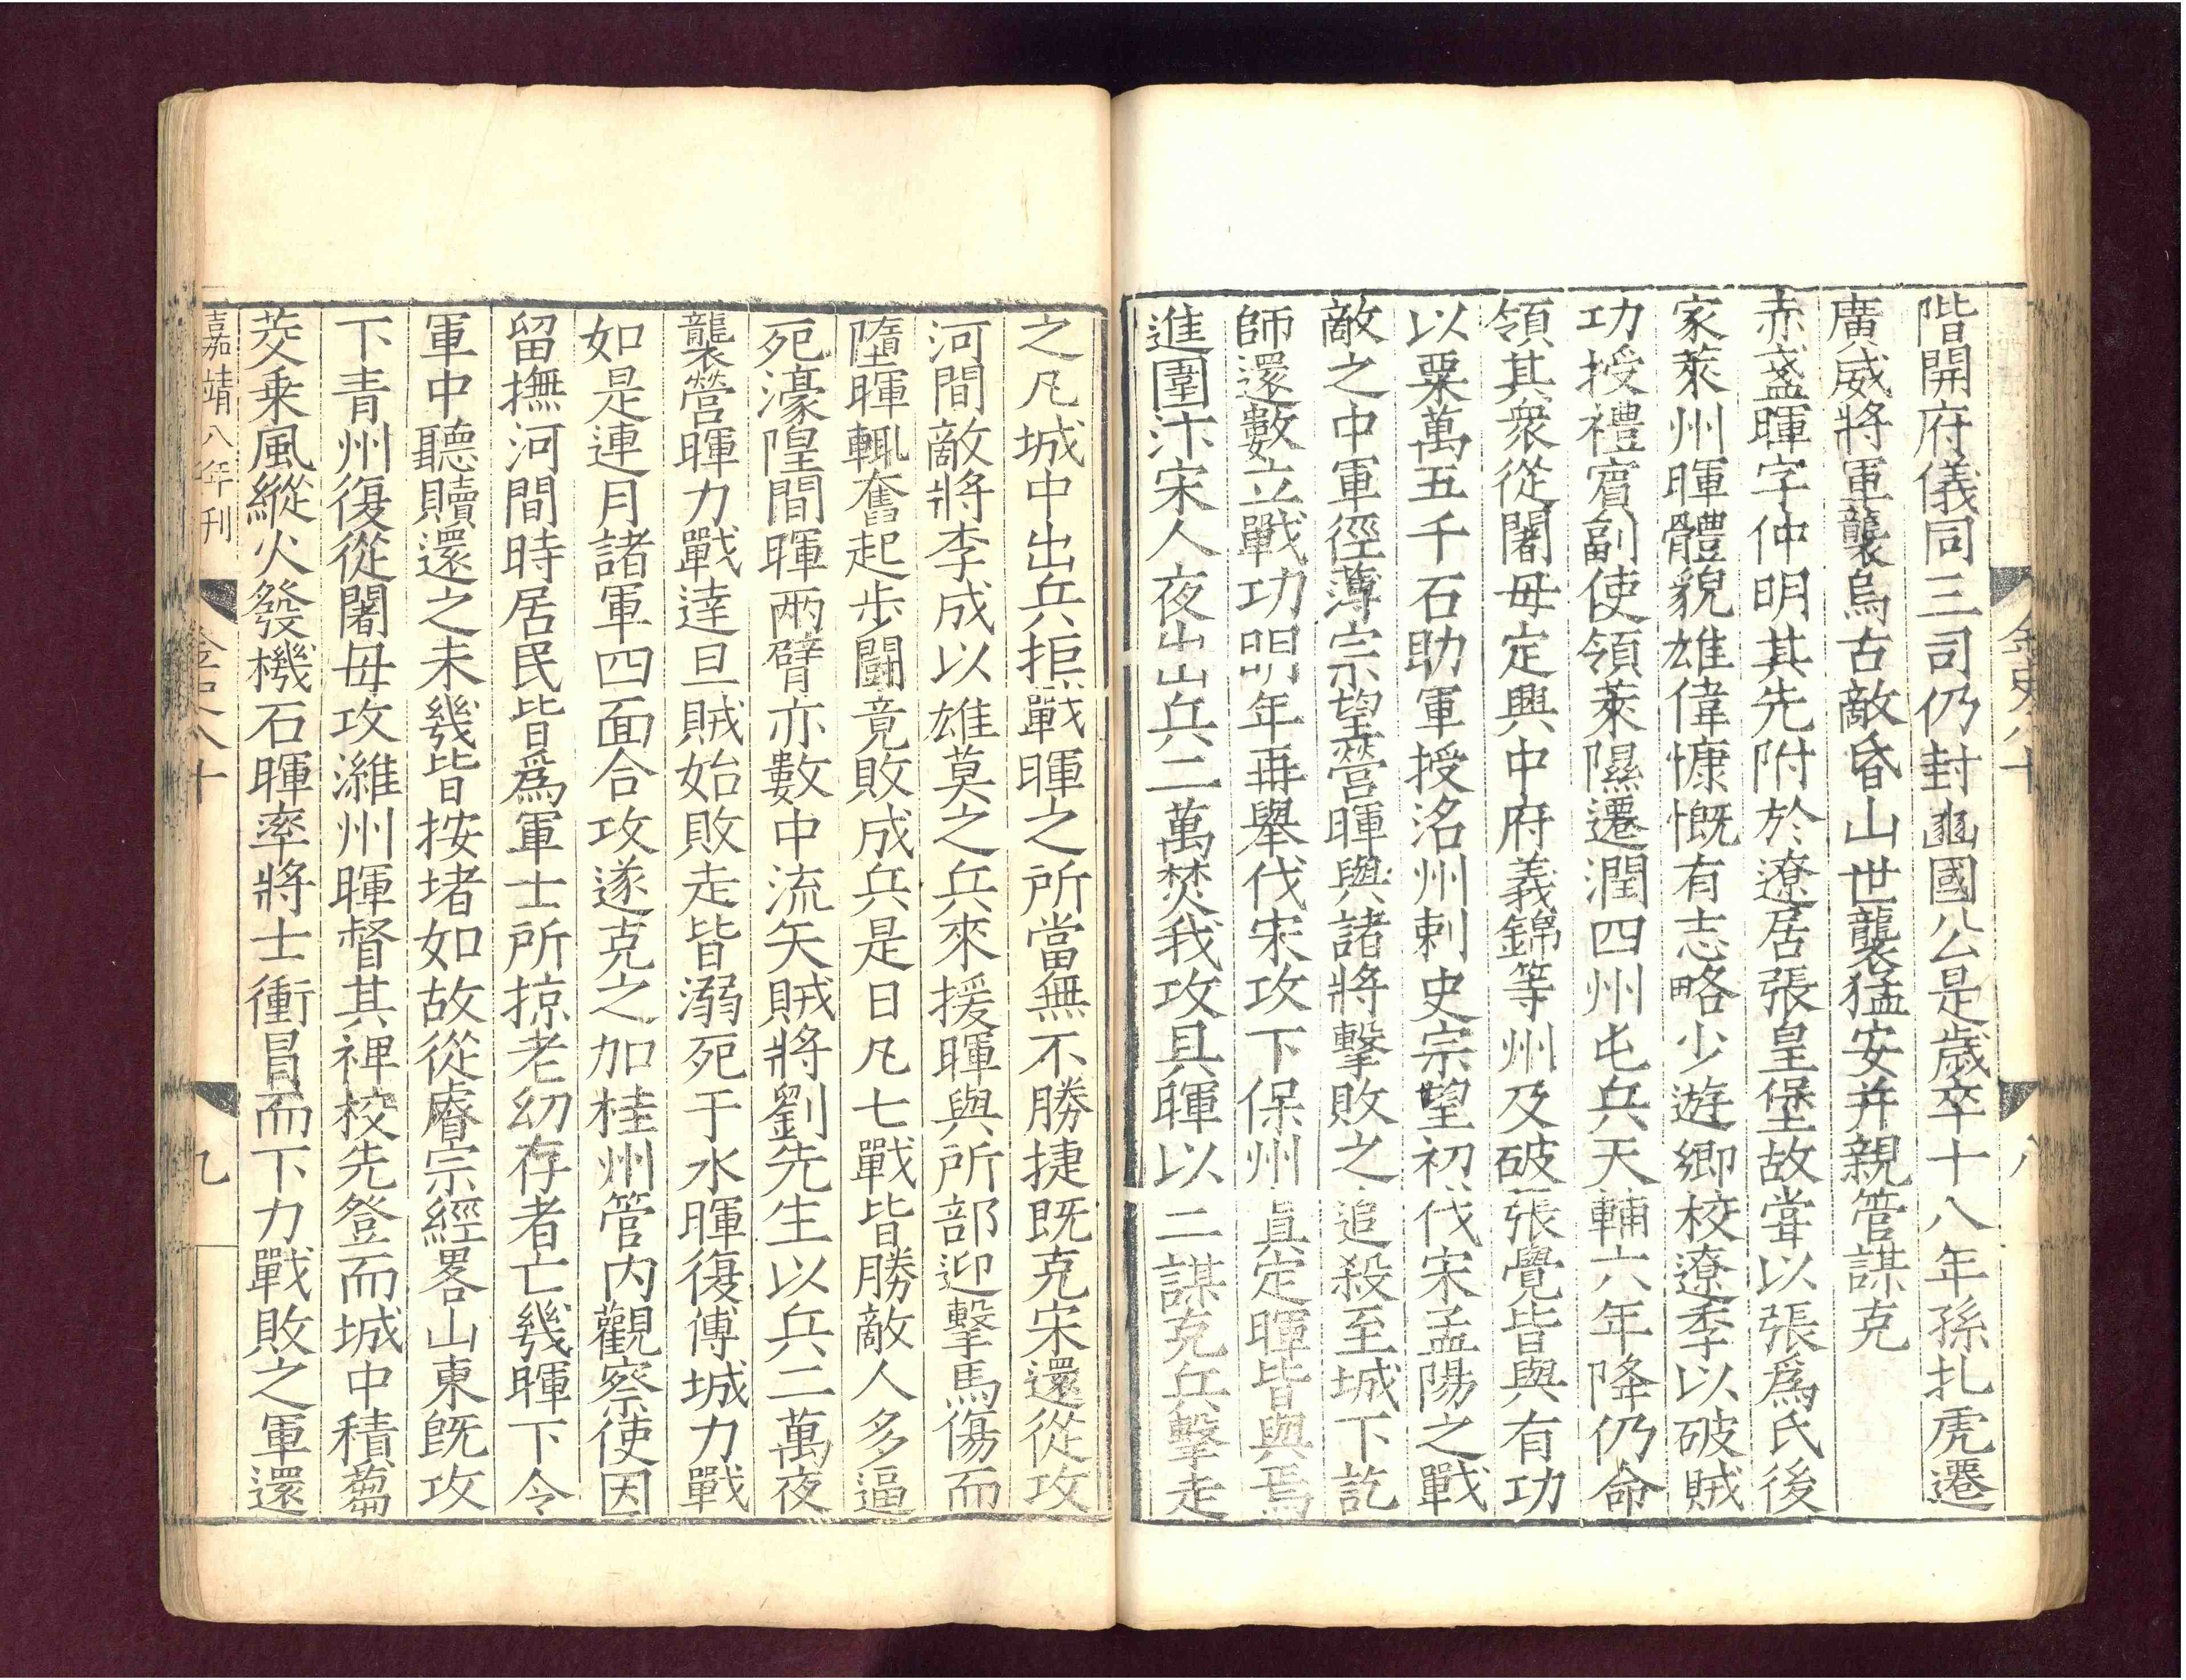 金史八十
八
階開府儀同三司仍封豳國公是歲卒十八年孫扎虎遷
廣威將軍襲烏古敵昏山世襲猛安并親管謀克
赤盞暉字仲明其先附於遼居張皇堡故嘗以張爲氏後
家萊州暉體貌雄偉慷慨有志略少遊鄉校遼季以破賊
功授禮賓副使領萊隰遷潤四州屯兵天輔六年降仍命
領其衆從闍母定興中府義錦等州及破張覺皆與有功
以粟萬五千石助軍授洺州刺史宗望初伐宋孟陽之戰
敵之中軍徑薄宗望營暉與諸將擊敗之追殺至城下訖
師還數立戰功明年再舉伐宋攻下保州眞定暉皆與焉
進圍汴宋人夜出兵二萬焚我攻具暉以二謀克兵擊走
之凡城中出兵拒戰暉之所當無不勝捷既克宋還從攻
河間敵將李成以雄莫之兵來援暉與所部迎擊馬傷而
墮暉輒奮起步鬭竟敗成兵是日凡七戰皆勝敵人多逼
死濠隍間暉兩臂亦數中流矢賊將劉先生以兵二萬夜
襲營暉力戰達旦賊始敗走皆溺死于水暉復傅城力戰
如是連月諸軍四面合攻遂克之加桂州管内觀察使因
留撫河間時居民皆爲軍士所掠老幼存者亡幾暉下令
軍中聽贖還之未幾皆按堵如故從睿宗經畧山東既攻
下青州復從闍母攻濰州暉督其裨校先登而城中積蒭
茭乗風縱火發機石暉率將士衝冒而下力戰敗之軍還
嘉靖八年刊
金史八十
九